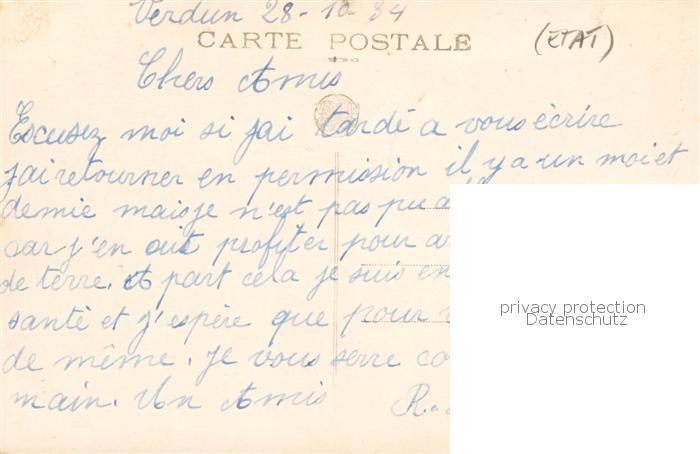 Verdun 28-10-34
CARTE POSTALE
(ETAT)
Chers Amis
Escusez moi si jai tardé a vous écrire
jai retourner en permission il y a un moi et
demie mais je n'est pas pu a
car j'en ait profiter pour ar
de terre. A part cela je suis en
santé et j'espère que pour v
de même. Je vous serre co
main. Un Amis R.
privacy protection
Datenschutz